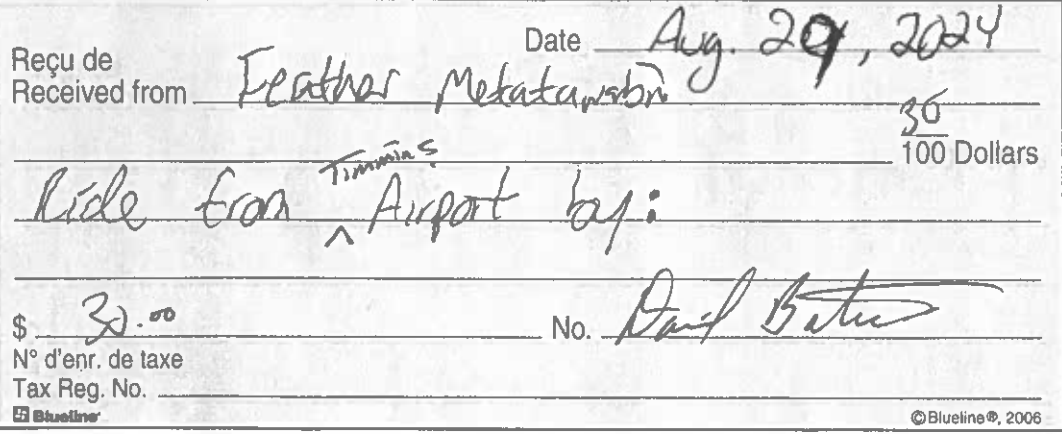 Date Aug. 29, 2024
Reçu de
Received from Feather Metatawabin
30
100 Dollars
Timmins
Ride from ^ Airport by:
$ 30.00 No. David
N° d'enr. de taxe
Tax Reg. No.
Blueline
©Blueline®, 2006